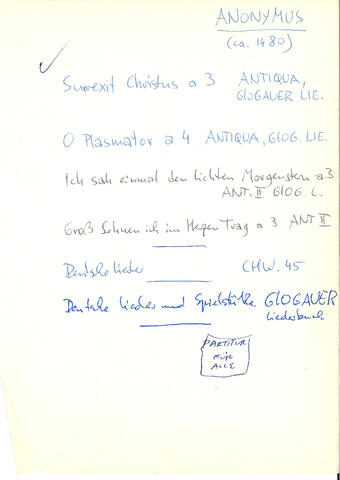 ANONYMUS
(ca. 1480)
Surrexit Christus a 3 ANTIQUA,
GLOGAUER LIE.
O Plasmator a 4 ANTIQUA, GLOG. LIE.
Ich sah einmal den lichten Morgenstern a 3
ANT. II GLOG. L.
Groß Sehnen ich im Herzen Trag a 3 ANT II
Deutsche Lieder CHW. 45
Deutsche Lieder und Spielstücke GLOGAUER
Liederbuch
PARTITUR
FÜR
ALLE